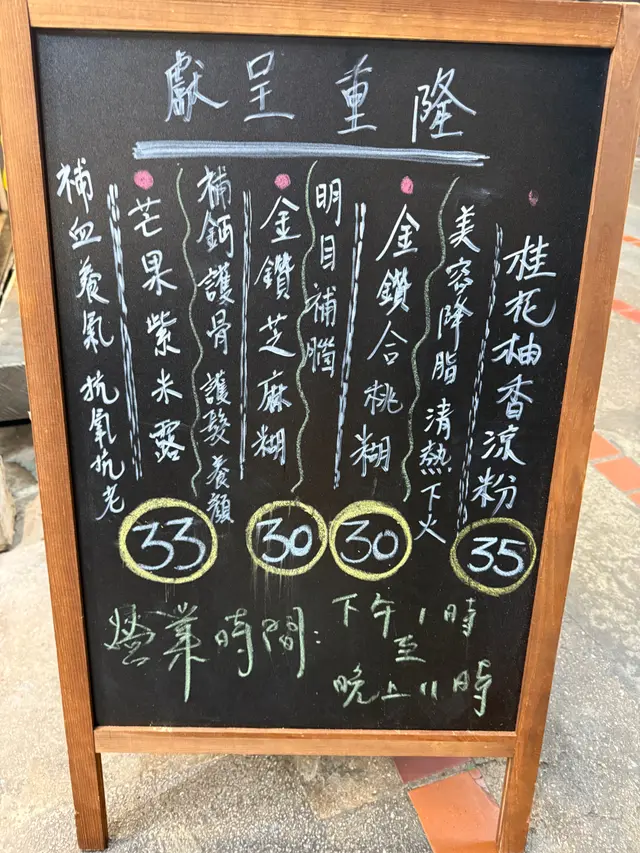 隆重呈獻
桂花柚香涼粉
35
美容降脂 清熱下火
金鑽合桃糊
30
明目補腦
金鑽芝麻糊
30
補鈣護骨護髮養顏
芒果紫米露
33
補血養氣抗氧抗老
營業時間:
下午1時
至
晚上11時